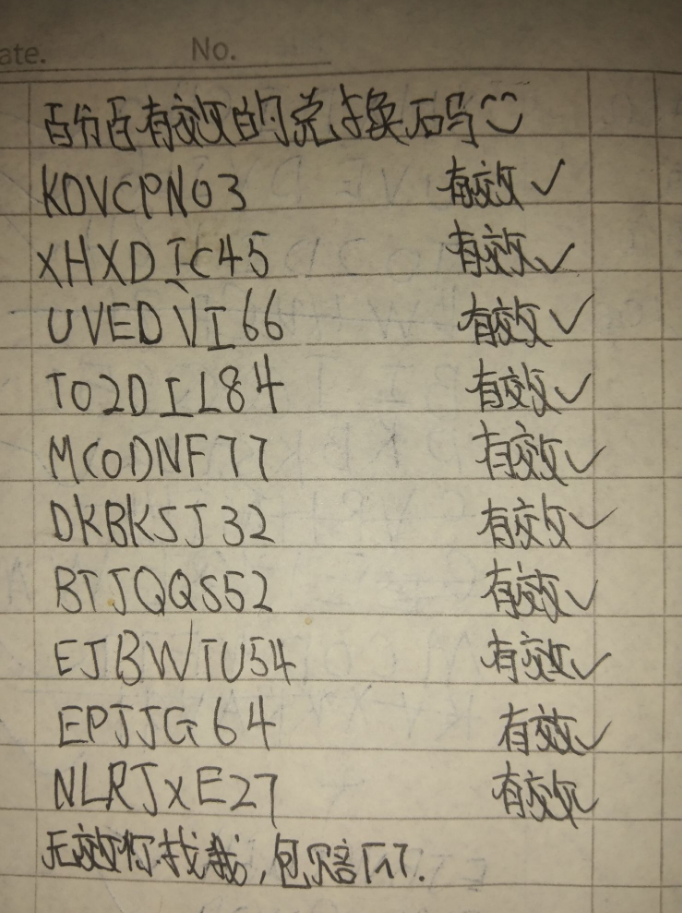 ate. No.
百分百有效的兑换码
KDVCPN03 有效✓
XHXDIC45 有效✓
UVEDVI66 有效✓
TO2DIL84 有效✓
MCODNF77 有效✓
DKBKSJ32 有效✓
BTJQQS52 有效✓
EJBWTU54 有效✓
EPJJG64 有效✓
NLRJXE27 有效✓
无效你找我,包赔